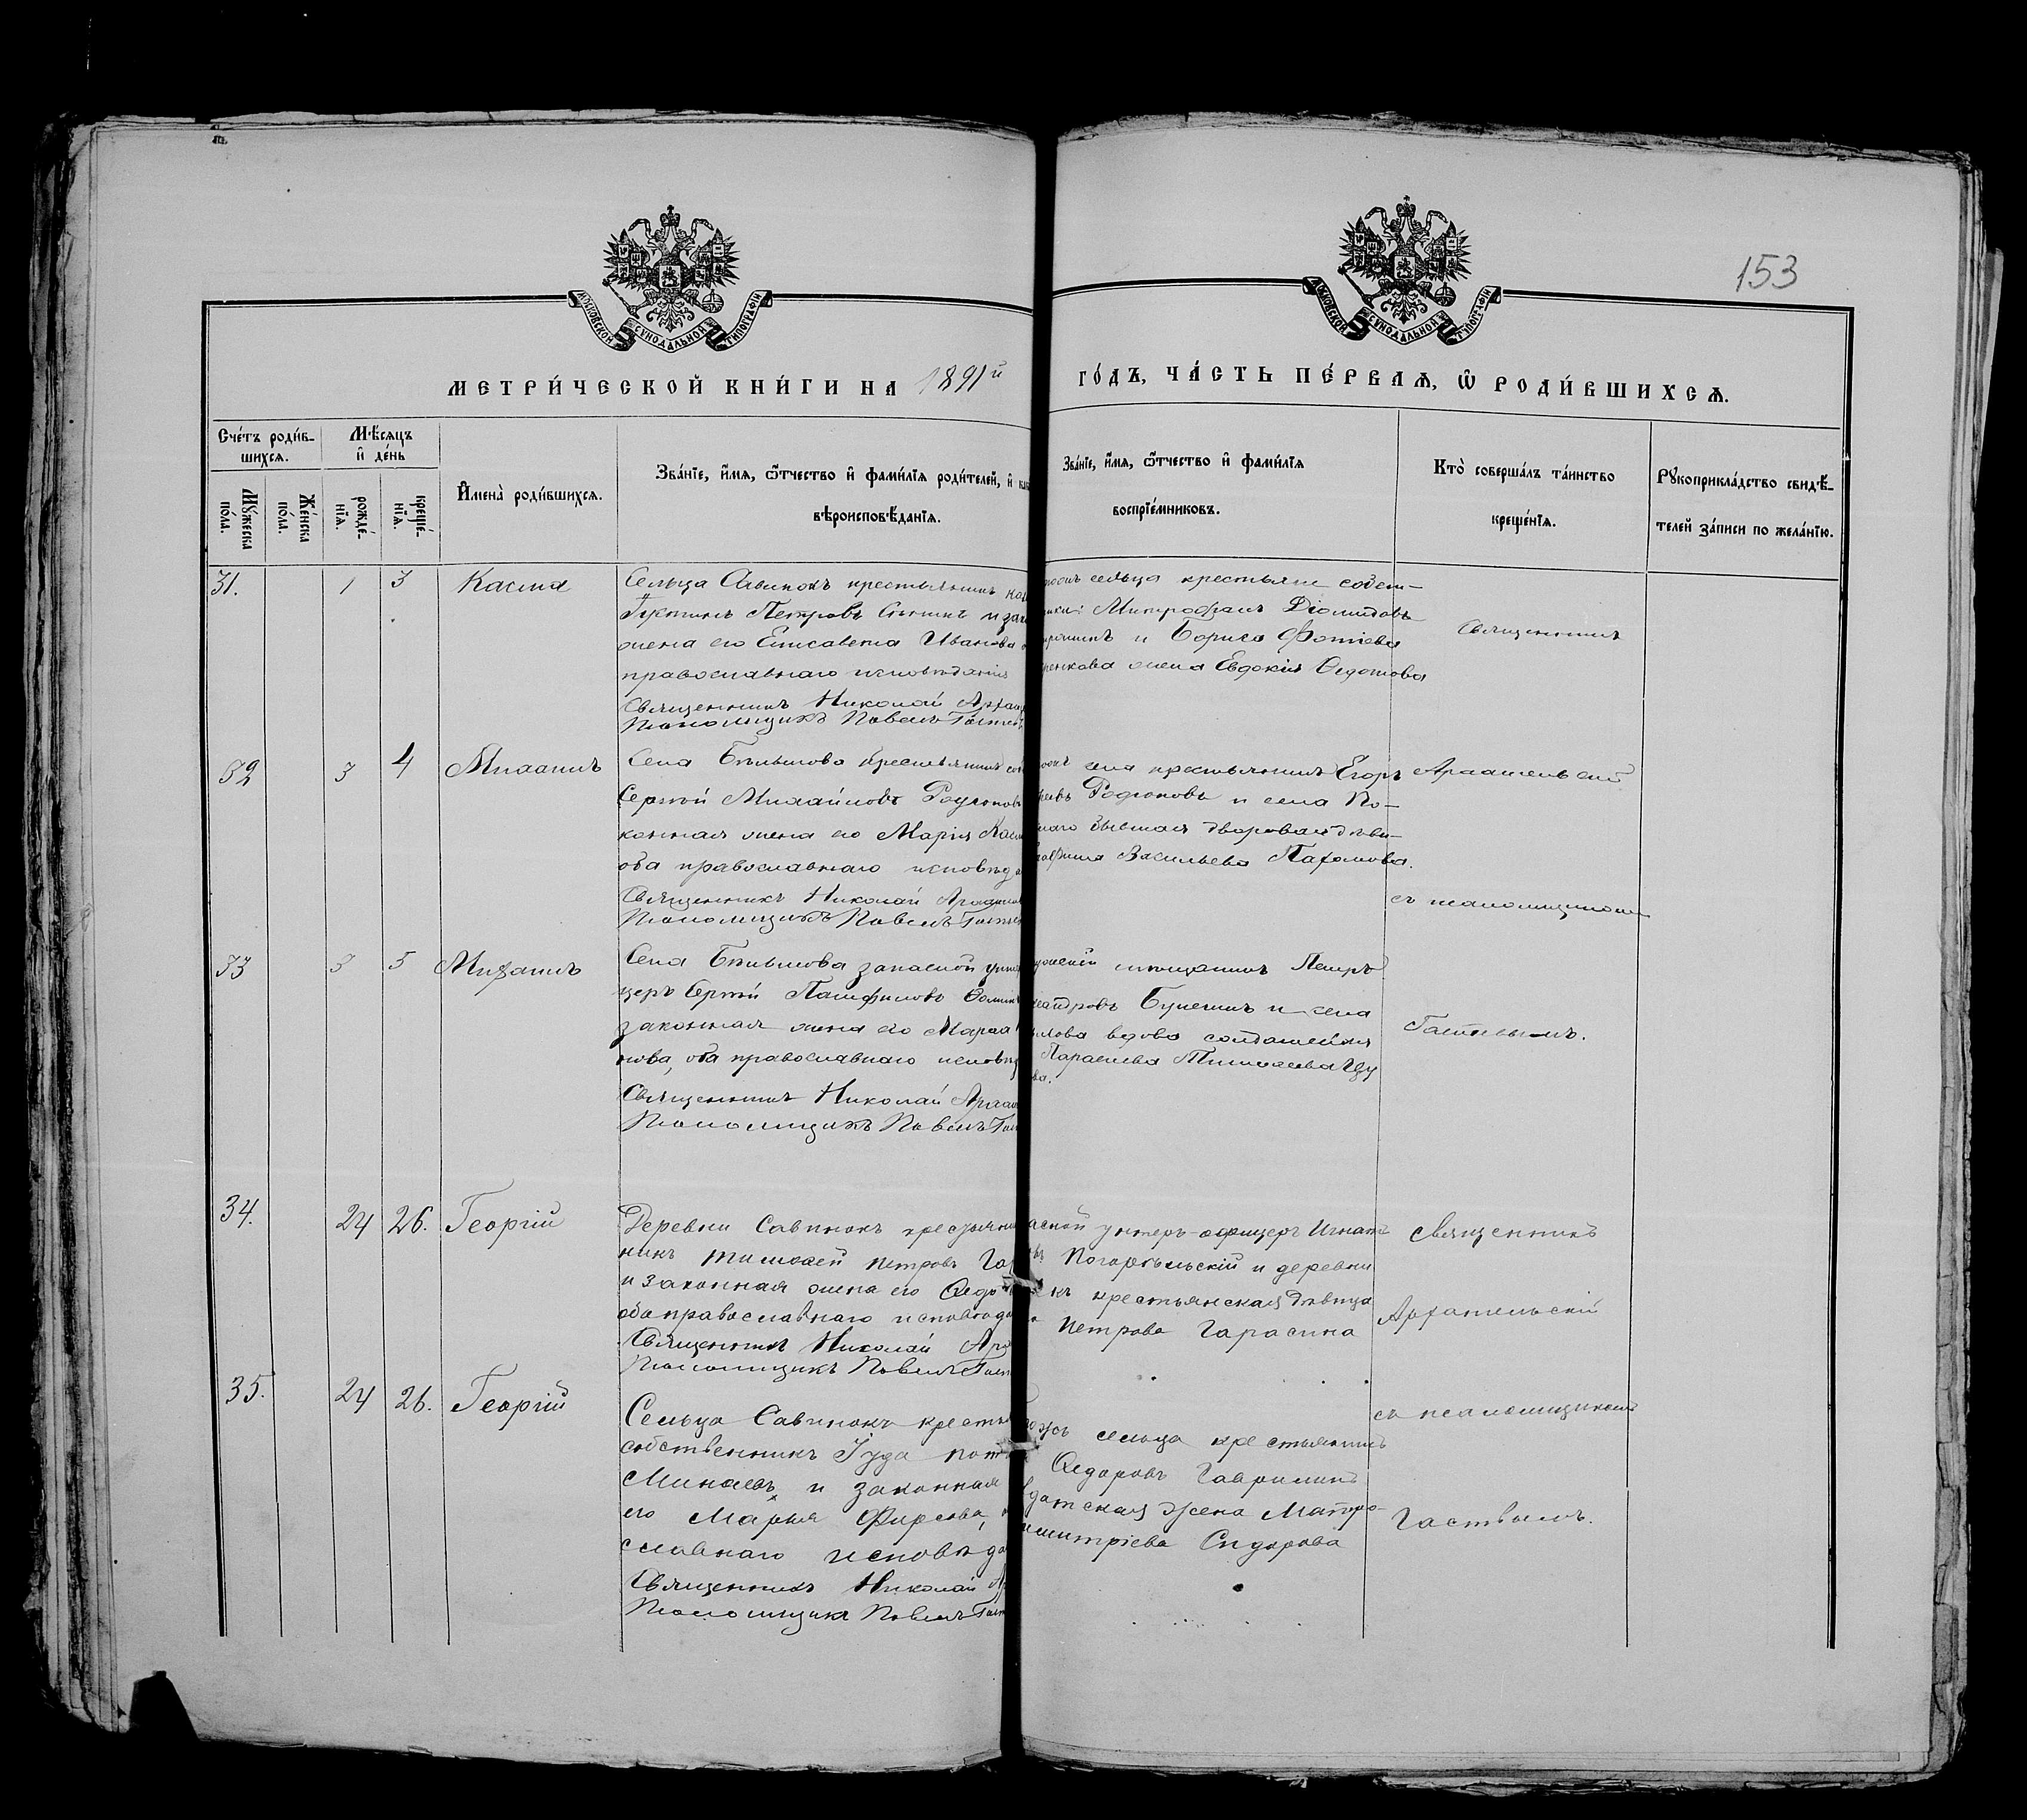 153
МОСКОВСКОЙ СѴНОДАЛЬНОЙ ТИПОГРАФІИ
МОСКОВСКОЙ СѴНОДАЛЬНОЙ ТИПОГРАФІИ
МЕТРИ́ЧЕСКОЙ КНИ́ГИ НА 1891й
ГО́ДЪ, ЧА́СТЬ ПЕ́РВАѦ, Ѡ҆ РОДИ́ВШИХСѦ.
Сче́тъ роди́в-
шихсѧ.
Мѣ́сѧцъ
и҆ де́нь
Мꙋ́жеска
по́ла.
Же́нска
по́ла.
рожде́-
нїѧ.
креще́-
нїѧ.
И҆мена̀ роди́вшихсѧ.
Зва́нїе, и҆́мѧ, ѻ҆́тчество и҆ фами́лїѧ роди́телей, и҆
вѣроисповѣ́данїѧ.
Зва́нїе, и҆́мѧ, ѻ҆́тчество и҆ фами́лїѧ
воспрїе́мниковъ.
Кто̀ соверша́лъ та́инство
креще́нїѧ.
Рꙋкоприкла́дство свидѣ́-
телей за́писи по жела́нїю.
31. 1 3 Касма
Сельца Савинокъ крестьянинъ
Петровъ и зак
жена его Елисавета Иванова
православнаго исповѣданія
Священникъ Николай Арханг
Псаломщикъ Павелъ Гастев
сельца крестьяне собст-
Митрофанъ Діомидовъ
и Бориса Фотіева
жена Евдокія Федотова
Священникъ
32 3 4 Михаилъ
Села Бѣльшова крестьянинъ соб
Сергѣй Михайловъ Родіоновъ
конная жена его Марія
оба православнаго исповѣда
Священникъ Николай Архангел
Псаломщикъ Павелъ Гастев
села крестьянинъ Егоръ
Родіоновъ и села По-
бывшая дворовая дѣви-
Васильева Пахомова.
Архангельскій
съ псаломщикомъ
33 3 5 Михаилъ
Села Бѣльшова запасной унт
церъ Сергѣй Памфиловъ
законная жена его Марѳа
нова, оба православнаго исповѣд
Священникъ Николай Архан
Псаломщикъ Павелъ Гас
мѣщанинъ Петръ
и села
вдова солдатская
Параскева Тимоѳеева
ва.
Гастевымъ.
34. 24 26. Георгій
Деревни Савинокъ крестьяни
никъ Тимоѳей Петровъ Га
и законная жена его Ѳедо
оба православнаго исповѣда
Священникъ Николай Арх
Псаломщикъ Павелъ Гаст
унтеръ-офицеръ Игнат
Погорѣльскій и деревни
къ крестьянская дѣвица
Петрова Гарасина
Священникъ
Архангельскій
35. 24 26. Георгій
Сельца Савинокъ кресть
собственникъ Іуда
Минаевъ и законная
его Марья Фирсова,
славнаго исповѣда
Священникъ Николай А
Псаломщикъ Павелъ Гаст
сельца крестьянинъ
Ѳедоровъ Гаврилинъ
датская жена Матро-
митріева Сидорова
съ псаломщикомъ
Гастевымъ.